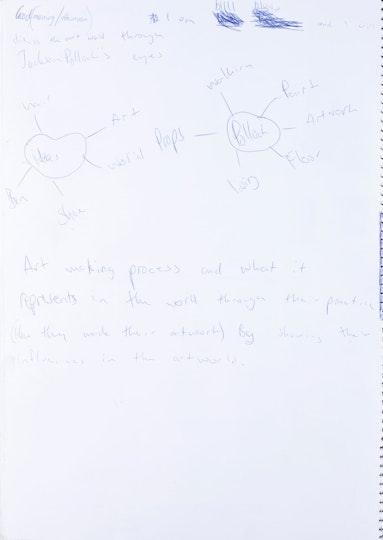 Good (morning/afternoon) I am and I will
discuss the art world through
Jackson Pollock's eyes
Art
world
Ideas
walking
Paint
Artwork
Props
Pollock
Floor
Art making process and what it
represents in the world through their practice
(How they made their artwork) By showing their
influences in the artworld.